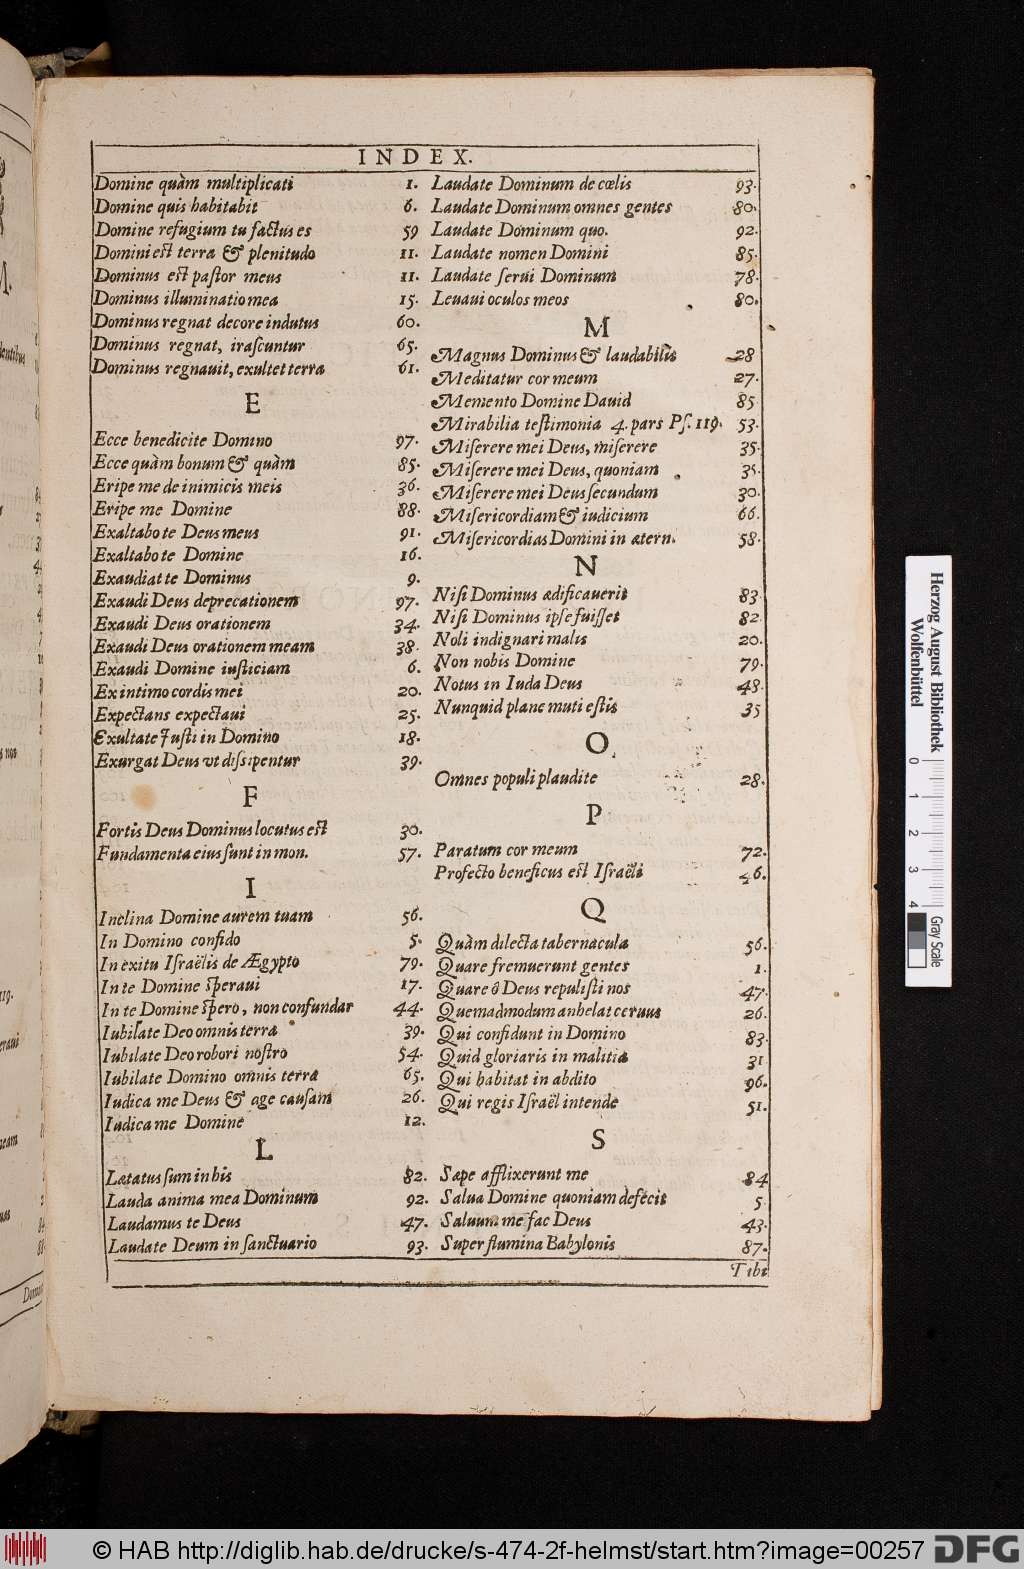 INDEX.
Domine quàm multiplicati 1.
Domine quis habitabit 6.
Domine refugium tu factus es 59
Domini est terra & plenitudo 11.
Dominus est pastor meus 11.
Dominus illuminatio mea 15.
Dominus regnat decore indutus 60.
Dominus regnat, irascuntur 65.
Dominus regnauit, exultet terra 61.
E
Ecce benedicite Domino 97.
Ecce quàm bonum & quàm 85.
Eripe me de inimicis meis 36.
Eripe me Domine 88.
Exaltabo te Deus meus 91.
Exaltabo te Domine 16.
Exaudiat te Dominus 9.
Exaudi Deus deprecationem 97.
Exaudi Deus orationem 34.
Exaudi Deus orationem meam 38.
Exaudi Domine iusticiam 6.
Ex intimo cordis mei 20.
Expectans expectaui 25.
Exultate Justi in Domino 18.
Exurgat Deus vt dissipentur 39.
F
Fortis Deus Dominus locutus est 30.
Fundamenta eius sunt in mon. 57.
I
Inclina Domine aurem tuam 56.
In Domino confido 5.
In exitu Israëlis de Ægypto 79.
In te Domine speraui 17.
In te Domine spero, non confundar 44.
Iubilate Deo omnis terra 39.
Iubilate Deo robori nostro 54.
Iubilate Domino omnis terra 65.
Iudica me Deus & age causam 26.
Iudica me Domine 12.
L
Lætatus sum in his 82.
Lauda anima mea Dominum 92.
Laudamus te Deus 47.
Laudate Deum in sanctuario 93.
Laudate Dominum de cœlis 93.
Laudate Dominum omnes gentes 80.
Laudate Dominum quo. 92.
Laudate nomen Domini 85.
Laudate serui Dominum 78.
Leuaui oculos meos 80.
M
Magnus Dominus & laudabilis 28
Meditatur cor meum 27.
Memento Domine Dauid 85
Mirabilia testimonia 4. pars Ps. 119. 53.
Miserere mei Deus, miserere 35.
Miserere mei Deus, quoniam 35.
Miserere mei Deus secundum 30.
Misericordiam & iudicium 66.
Misericordias Domini in ætern. 58.
N
Nisi Dominus ædificauerit 83.
Nisi Dominus ipse fuisset 82.
Noli indignari malis 20.
Non nobis Domine 79.
Notus in Iuda Deus 48.
Nunquid plane muti estis 35
O
Omnes populi plaudite 28.
P
Paratum cor meum 72.
Profecto beneficus est Israëli 46.
Q
Quàm dilecta tabernacula 56.
Quare fremuerunt gentes 1.
Quare ô Deus repulisti nos 47.
Quemadmodum anhelat ceruus 26.
Qui confidunt in Domino 83.
Quid gloriaris in malitia 31
Qui habitat in abdito 96.
Qui regis Israël intende 51.
S
Sæpe afflixerunt me 84
Salua Domine quoniam defecit 5.
Saluum me fac Deus 43.
Super flumina Babylonis 87.
Tibi
Herzog August Bibliothek
Wolfenbüttel
0 1 2 3 4
Gray Scale
© HAB http://diglib.hab.de/drucke/s-474-2f-helmst/start.htm?image=00257
DFG